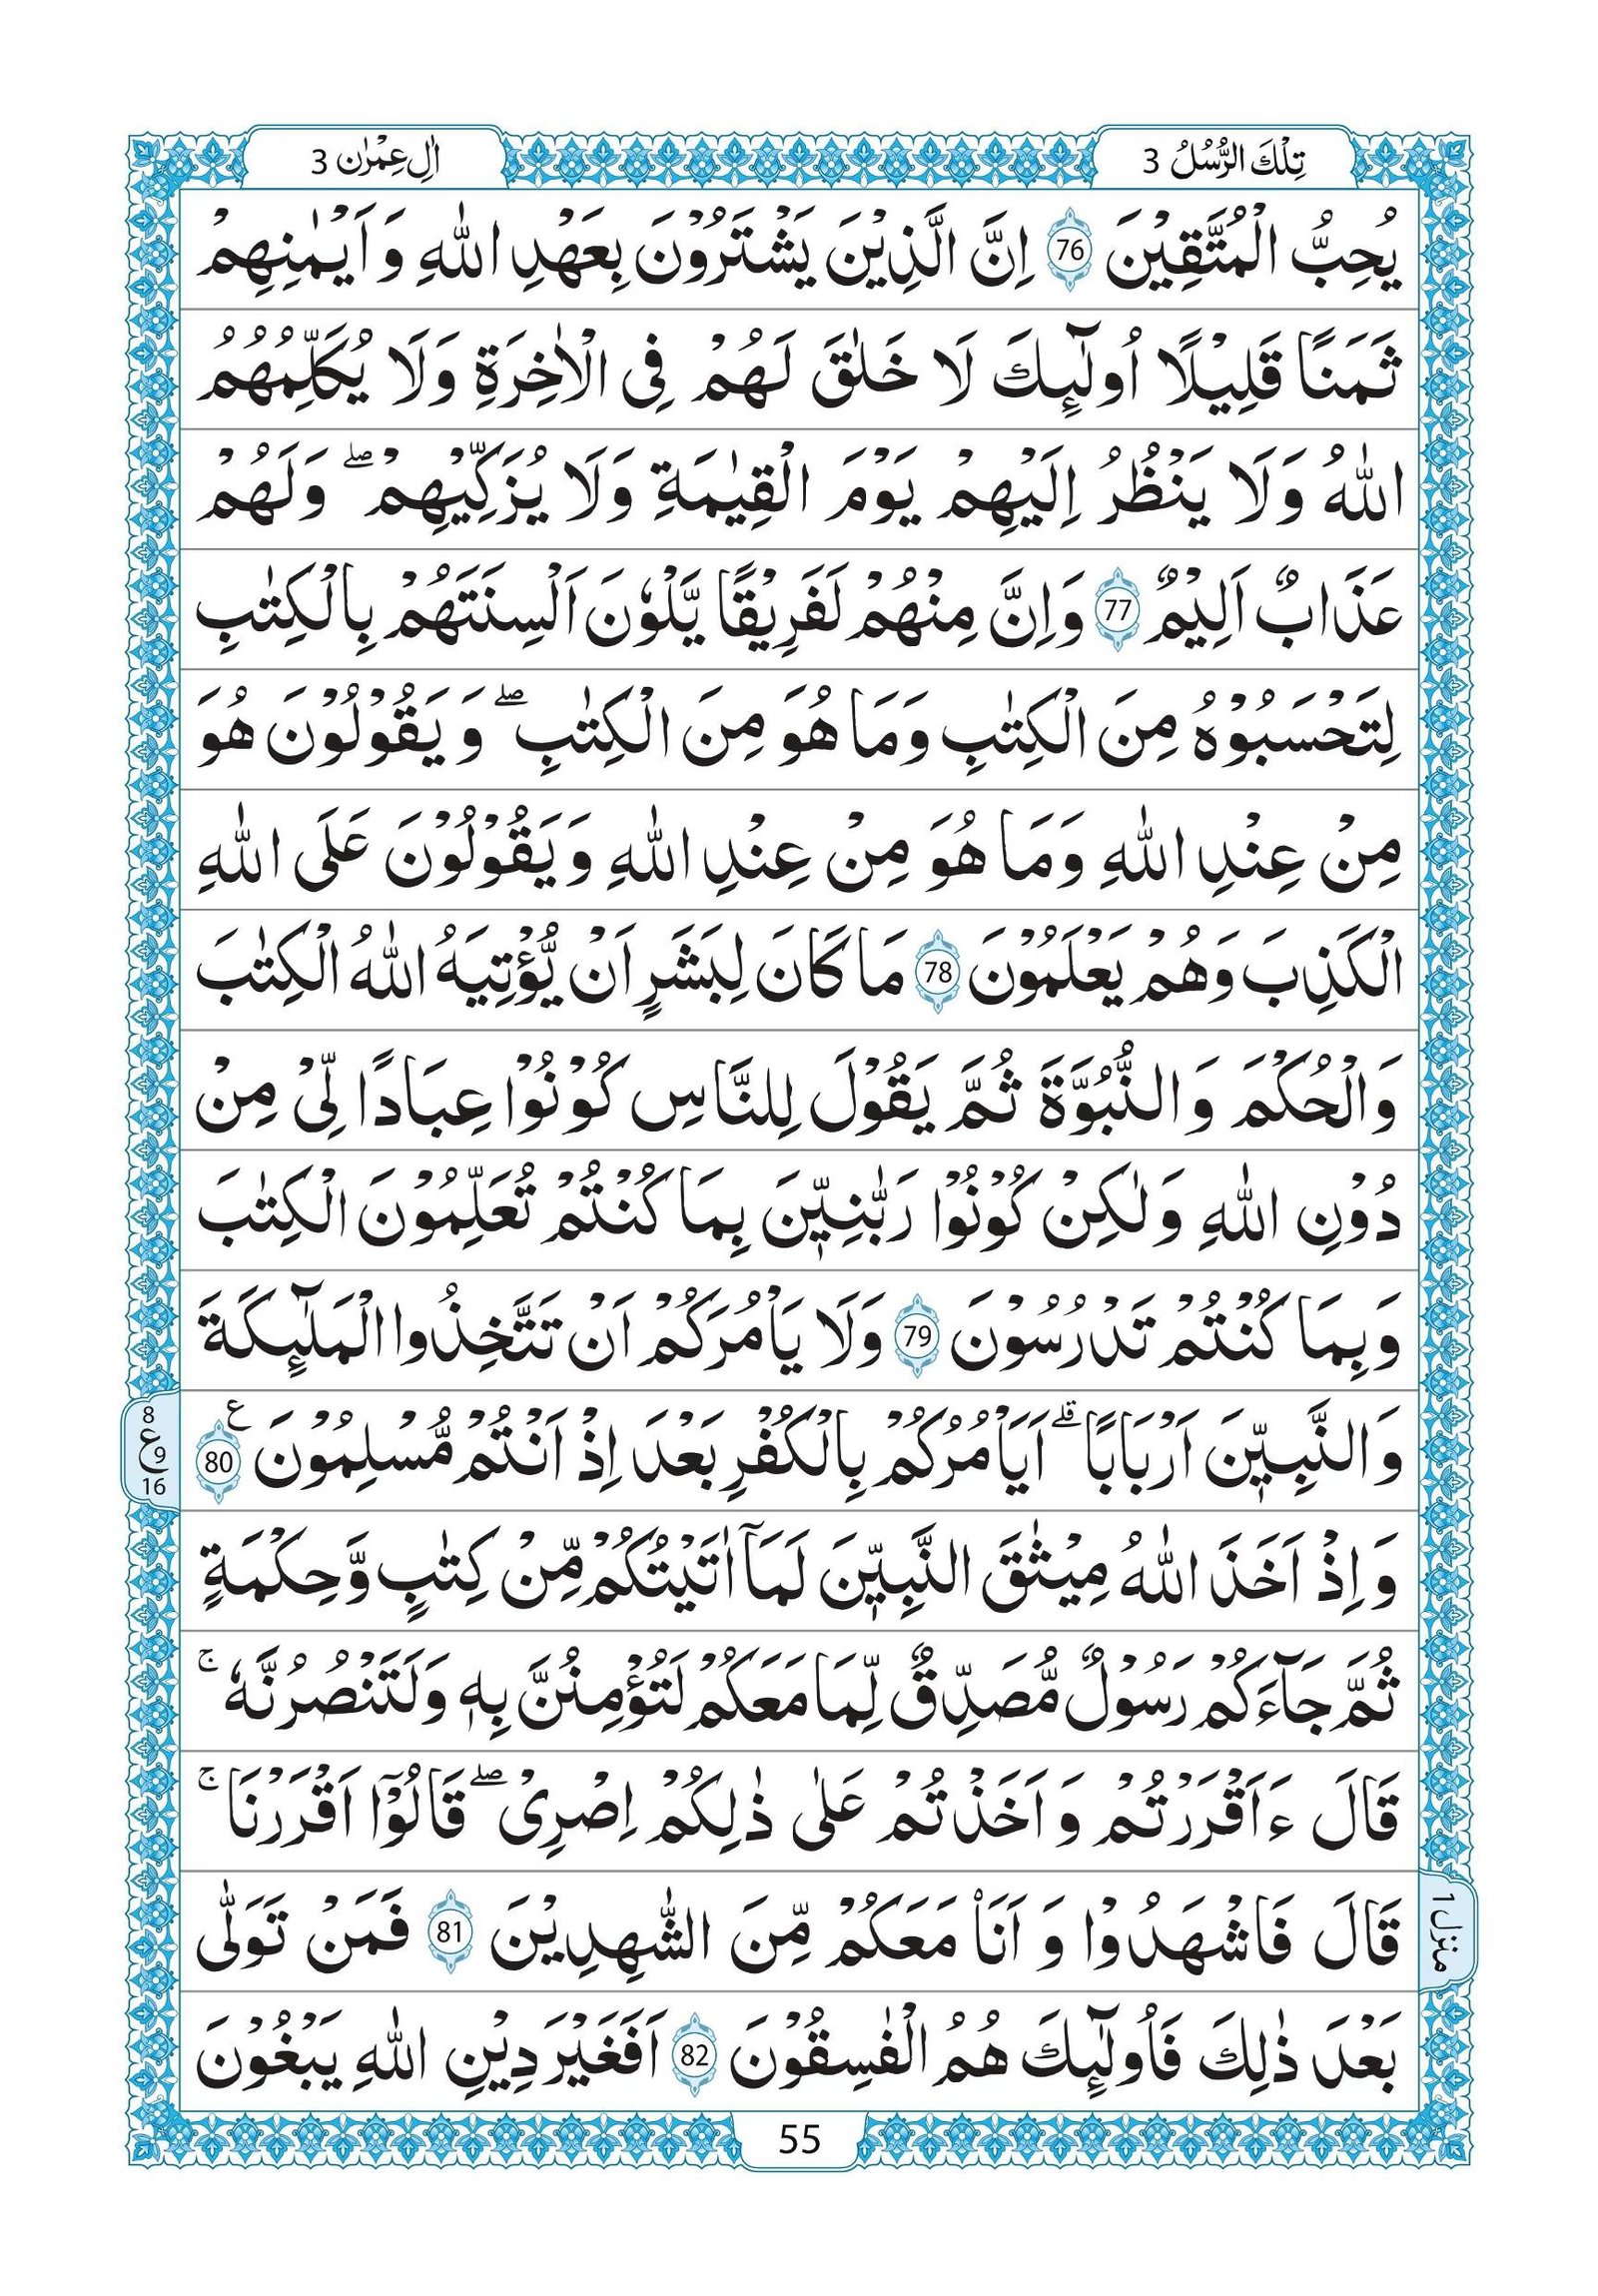 تِلْكَ الرُّسُلُ 3
اٰلِ عِمْرٰن 3
يُحِبُّ الْمُتَّقِيْنَ 76 اِنَّ الَّذِيْنَ يَشْتَرُوْنَ بِعَهْدِ اللّٰهِ وَ اَيْمٰنِهِمْ
ثَمَنًا قَلِيْلًا اُولٰٓئِكَ لَا خَلٰقَ لَهُمْ فِى الْاٰخِرَةِ وَلَا يُكَلِّمُهُمُ
اللّٰهُ وَلَا يَنْظُرُ اِلَيْهِمْ يَوْمَ الْقِيٰمَةِ وَلَا يُزَكِّيْهِمْ ۖ وَلَهُمْ
عَذَابٌ اَلِيْمٌ 77 وَاِنَّ مِنْهُمْ لَفَرِيْقًا يَّلْوٗنَ اَلْسِنَتَهُمْ بِالْكِتٰبِ
لِتَحْسَبُوْهُ مِنَ الْكِتٰبِ وَمَا هُوَ مِنَ الْكِتٰبِ ۖ وَ يَقُوْلُوْنَ هُوَ
مِنْ عِنْدِ اللّٰهِ وَمَا هُوَ مِنْ عِنْدِ اللّٰهِ وَيَقُوْلُوْنَ عَلَى اللّٰهِ
الْكَذِبَ وَهُمْ يَعْلَمُوْنَ 78 مَا كَانَ لِبَشَرٍ اَنْ يُّؤْتِيَهُ اللّٰهُ الْكِتٰبَ
وَالْحُكْمَ وَ النُّبُوَّةَ ثُمَّ يَقُوْلَ لِلنَّاسِ كُوْنُوْا عِبَادًا لِّىْ مِنْ
دُوْنِ اللّٰهِ وَلٰكِنْ كُوْنُوْا رَبّٰنِيّٖنَ بِمَا كُنْتُمْ تُعَلِّمُوْنَ الْكِتٰبَ
وَبِمَا كُنْتُمْ تَدْرُسُوْنَ 79 وَلَا يَاْمُرَكُمْ اَنْ تَتَّخِذُوا الْمَلٰٓئِكَةَ
وَ النَّبِيّٖنَ اَرْبَابًا ۗ اَيَاْمُرُكُمْ بِالْكُفْرِ بَعْدَ اِذْ اَنْتُمْ مُّسْلِمُوْنَ ع 80
8
ع 9
16
وَ اِذْ اَخَذَ اللّٰهُ مِيْثٰقَ النَّبِيّٖنَ لَمَآ اٰتَيْتُكُمْ مِّنْ كِتٰبٍ وَّحِكْمَةٍ
ثُمَّ جَآءَكُمْ رَسُوْلٌ مُّصَدِّقٌ لِّمَا مَعَكُمْ لَتُؤْمِنُنَّ بِهٖ وَلَتَنْصُرُنَّهٗ ۚ
قَالَ ءَاَقْرَرْتُمْ وَ اَخَذْتُمْ عَلٰى ذٰلِكُمْ اِصْرِىْ ۖ قَالُوْٓا اَقْرَرْنَا ۚ
قَالَ فَاشْهَدُوْا وَ اَنَا۠ مَعَكُمْ مِّنَ الشّٰهِدِيْنَ 81 فَمَنْ تَوَلّٰى
منزل 1
بَعْدَ ذٰلِكَ فَاُولٰٓئِكَ هُمُ الْفٰسِقُوْنَ 82 اَفَغَيْرَ دِيْنِ اللّٰهِ يَبْغُوْنَ
55